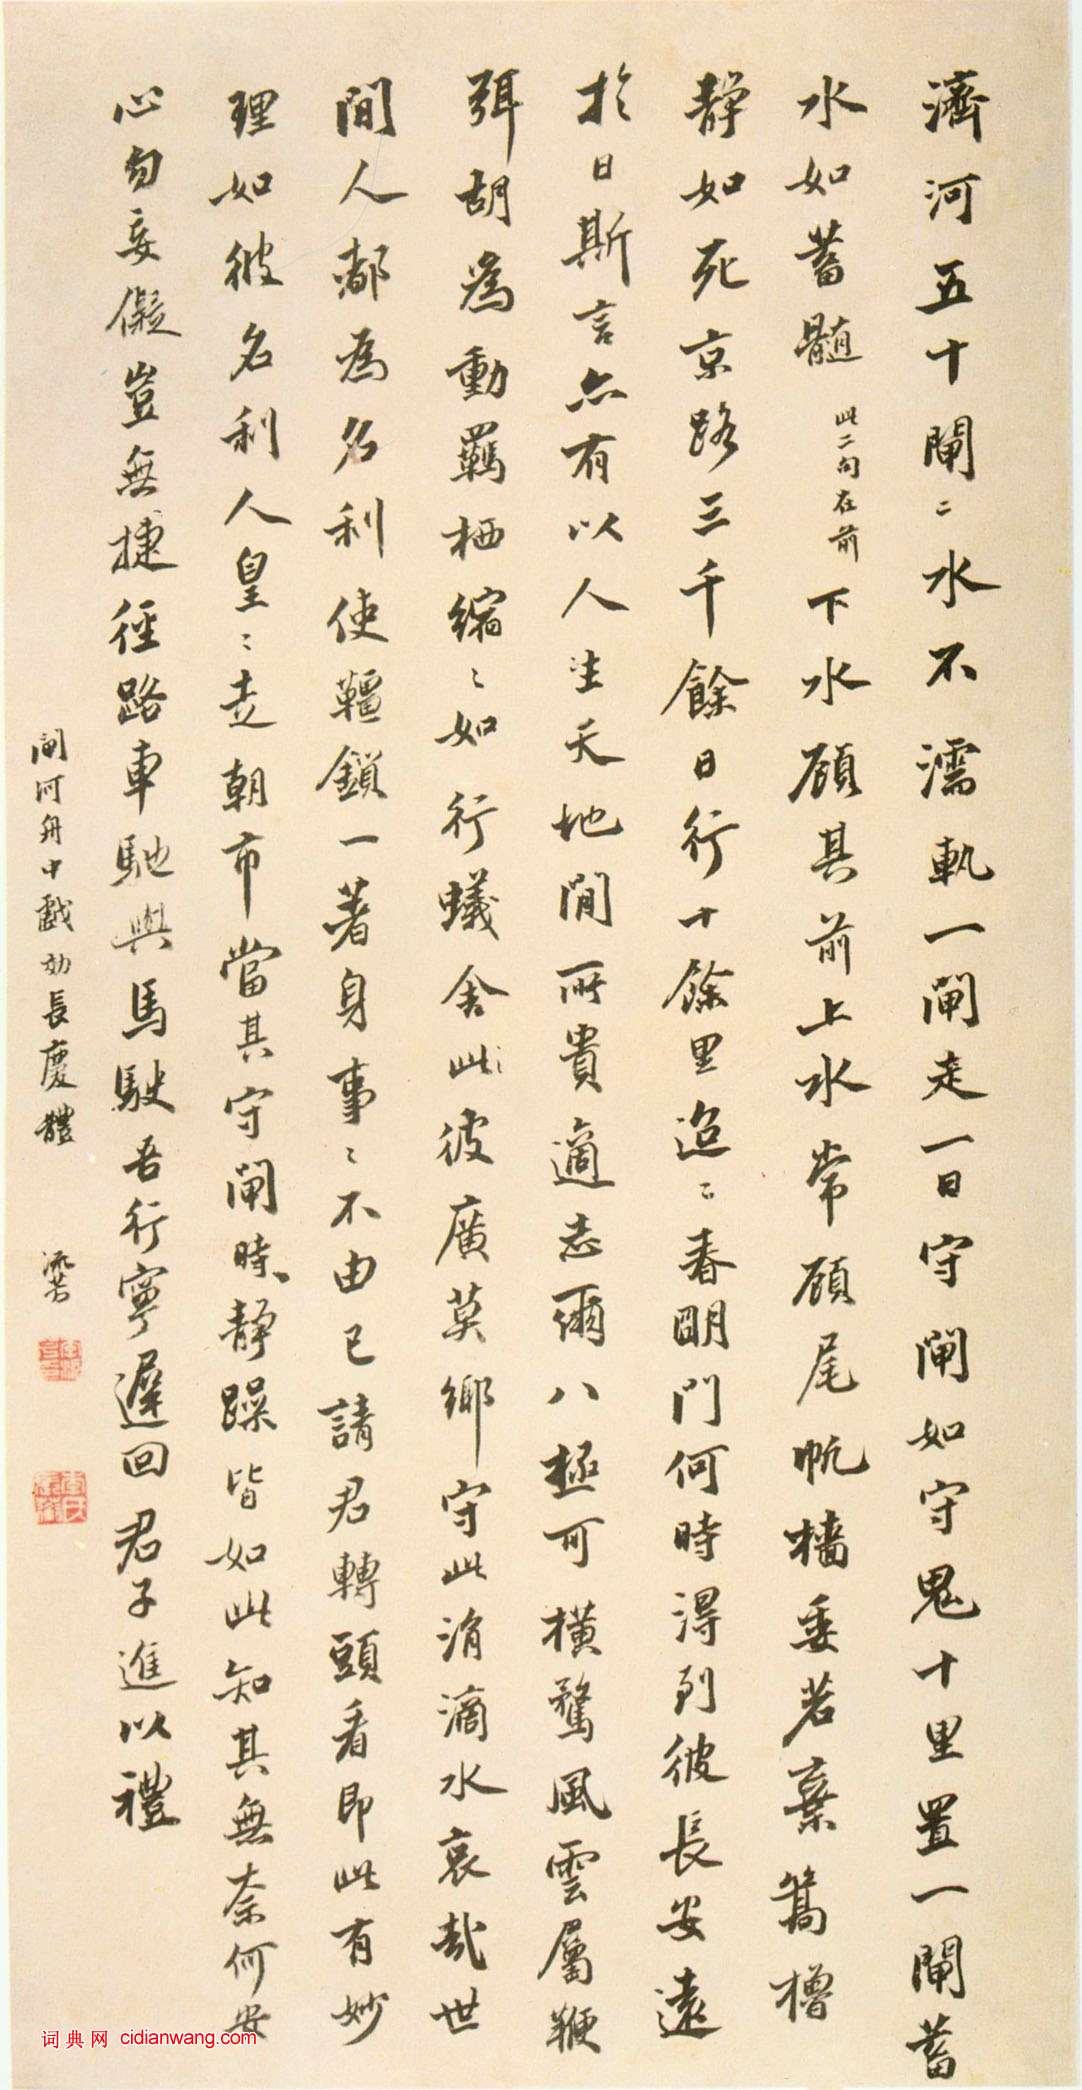 濟河五十閘二水不濡軌一閘走一日守閘如守鬼十里置一閘蓄
水如蓄髓此二句在前下水顧其前上水常顧尾帆檣委若棄篙櫓
靜如死京路三千餘日行十餘里迢〻春明門何時得到彼長安遠
於日斯言亦有以人生天地間所貴適志爾八極可橫騖風雲屬鞭
弭胡為動羈栖縮〻如行蟻舍此彼廣莫鄉守此涓滴水哀哉世
間人都為名利使韁鎖一著身事〻不由己請君轉頭看即此有妙
理如彼名利人皇〻走朝市當其守閘時靜躁皆如此知其無奈何安
心勿妄儗豈無捷徑路車馳與馬駛吾行寧遲回君子進以禮
閘河舟中戲効長慶體
詞典网 cidianwang.com